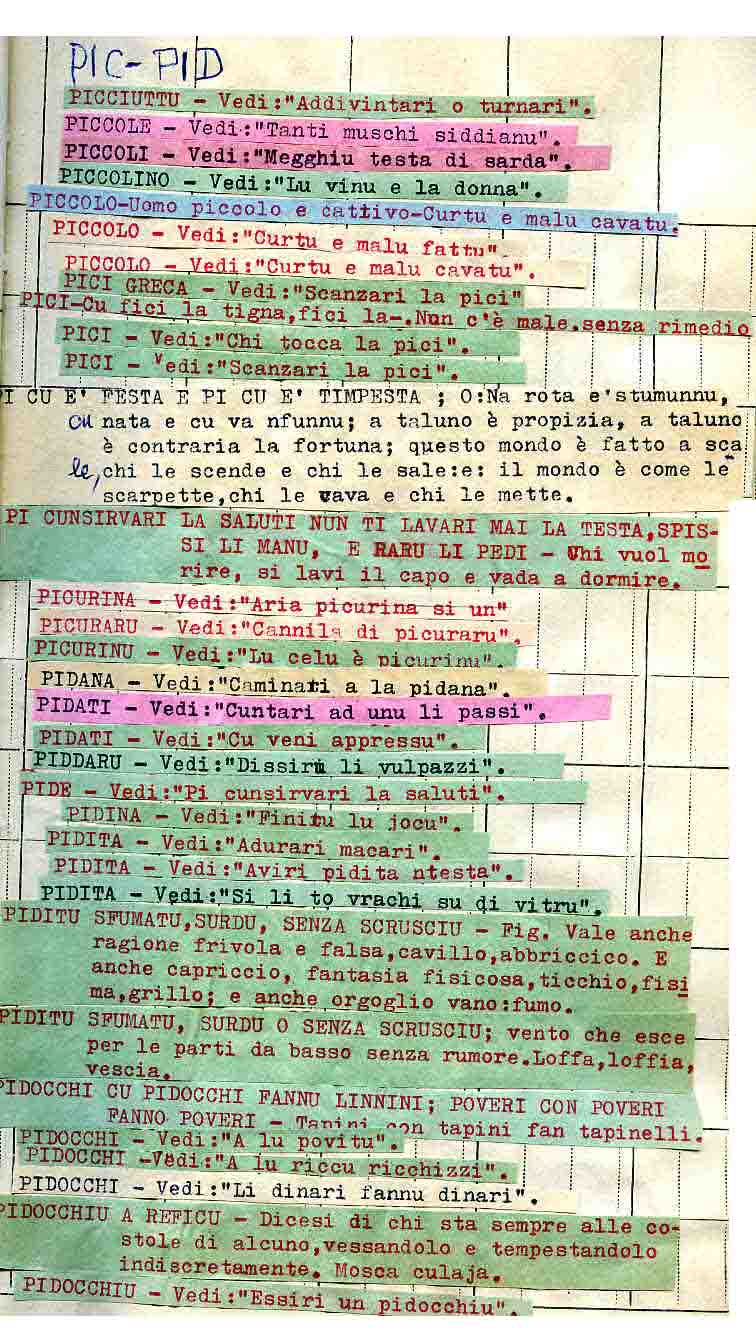 PIC-PID
PICCIUTTU - Vedi:"Addivintari o turnari".
PICCOLE - Vedi:"Tanti muschi siddianu".
PICCOLI - Vedi:"Megghiu testa di sarda".
PICCOLINO - Vedi:"Lu vinu e la donna".
PICCOLO-Uomo piccolo e cattivo-Curtu e malu cavatu.
PICCOLO - Vedi:"Curtu e malu fattu".
PICCOLO - Vedi:"Curtu e malu cavatu".
PICI GRECA - Vedi:"Scanzari la pici"
PICI-Cu fici la tigna,fici la-.Nun c'è male.senza rimedio
PICI - Vedi:"Chi tocca la pici".
PICI - Vedi:"Scanzari la pici".
I CU E' FESTA E PI CU E' TIMPESTA ; O:Na rota e'stumunnu,
cu nata e cu va nfunnu; a taluno è propizia, a taluno
è contraria la fortuna; questo mondo è fatto a sca
le, chi le scende e chi le sale:e: il mondo è come le
scarpette,chi le cava e chi le mette.
PI CUNSIRVARI LA SALUTI NUN TI LAVARI MAI LA TESTA,SPIS-
SI LI MANU, E RARU LI PEDI - Chi vuol mo
rire, si lavi il capo e vada a dormire.
PICURINA - Vedi:"Aria picurina si un"
PICURARU - Vedi:"Cannila di picuraru".
PICURINU - Vedi:"Lu celu è picurinu".
PIDANA - Vedi:"Caminari a la pidana".
PIDATI - Vedi:"Cuntari ad unu li passi".
PIDATI - Vedi:"Cu veni appressu".
PIDDARU - Vedi:"Dissiru li vulpazzi".
PIDE - Vedi:"Pi cunsirvari la saluti".
PIDINA - Vedi:"Finitu lu jocu".
PIDITA - Vedi:"Adurari macari".
PIDITA - Vedi:"Aviri pidita ntesta".
PIDITA - Vedi:"Si li to vrachi su di vitru".
PIDITU SFUMATU,SURDU, SENZA SCRUSCIU - Fig. Vale anche
ragione frivola e falsa,cavillo,abbriccico. E
anche capriccio, fantasia fisicosa,ticchio,fisi
ma,grillo; e anche orgoglio vano:fumo.
PIDITU SFUMATU, SURDU O SENZA SCRUSCIU; vento che esce
per le parti da basso senza rumore.Loffa,loffia,
vescia.
PIDOCCHI CU PIDOCCHI FANNU LINNINI; POVERI CON POVERI
FANNO POVERI - Tapini con tapini fan tapinelli.
PIDOCCHI - Vedi:"A lu povitu".
PIDOCCHI -Vedi:"A lu riccu ricchizzi".
PIDOCCHI - Vedi:"Li dinari fannu dinari".
PIDOCCHIU A REFICU - Dicesi di chi sta sempre alle co-
stole di alcuno,vessandolo e tempestandolo
indiscretamente. Mosca culaja.
PIDOCCHIU - Vedi:"Essiri un pidocchiu".